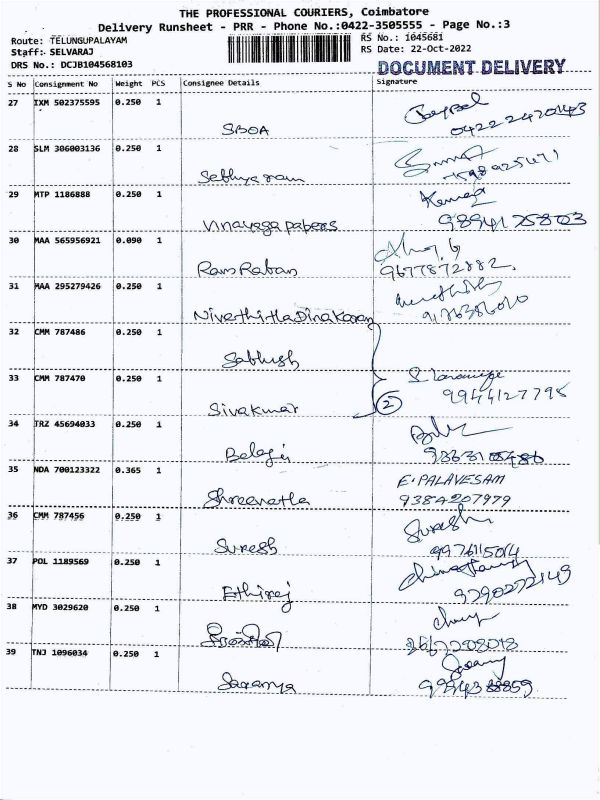 THE PROFESSIONAL COURIERS, Coimbatore
Delivery Runsheet - PRR - Phone No.:0422-3505555 - Page No.:3
Route: TELUNGUPALAYAM
RS No.: 1045681
Staff: SELVARAJ
RS Date: 22-Oct-2022
DRS No.: DCJB104568103
DOCUMENT DELIVERY
S No Consignment No Weight PCS Consignee Details Signature
27 IXM 502375595 0.250 1
SBOA 0422 2420143
28 SLM 306003136 0.250 1
Sathya ram
29 MTP 1186888 0.250 1
Vinayaga papers 9894175803
30 MAA 565956921 0.090 1
Ram Ratan 9677872882.
31 MAA 295279426 0.250 1
Nivethitha Dinakaran 9176386010
32 CMM 787486 0.250 1
Sabhish
33 CMM 787470 0.250 1
Sivakumar 2 9944127798
34 TRZ 45694033 0.250 1
Balaji
35 NDA 700123322 0.365 1 E.PALAVESAM
Shreenatha 9384207979
36 CMM 787456 0.250 1 Suresh
Suresh 9976115014
37 POL 1189569 0.250 1
Ethiraj 9790272149
38 MYD 3029620 0.250 1
39 TNJ 1096034 0.250 1
Saranya